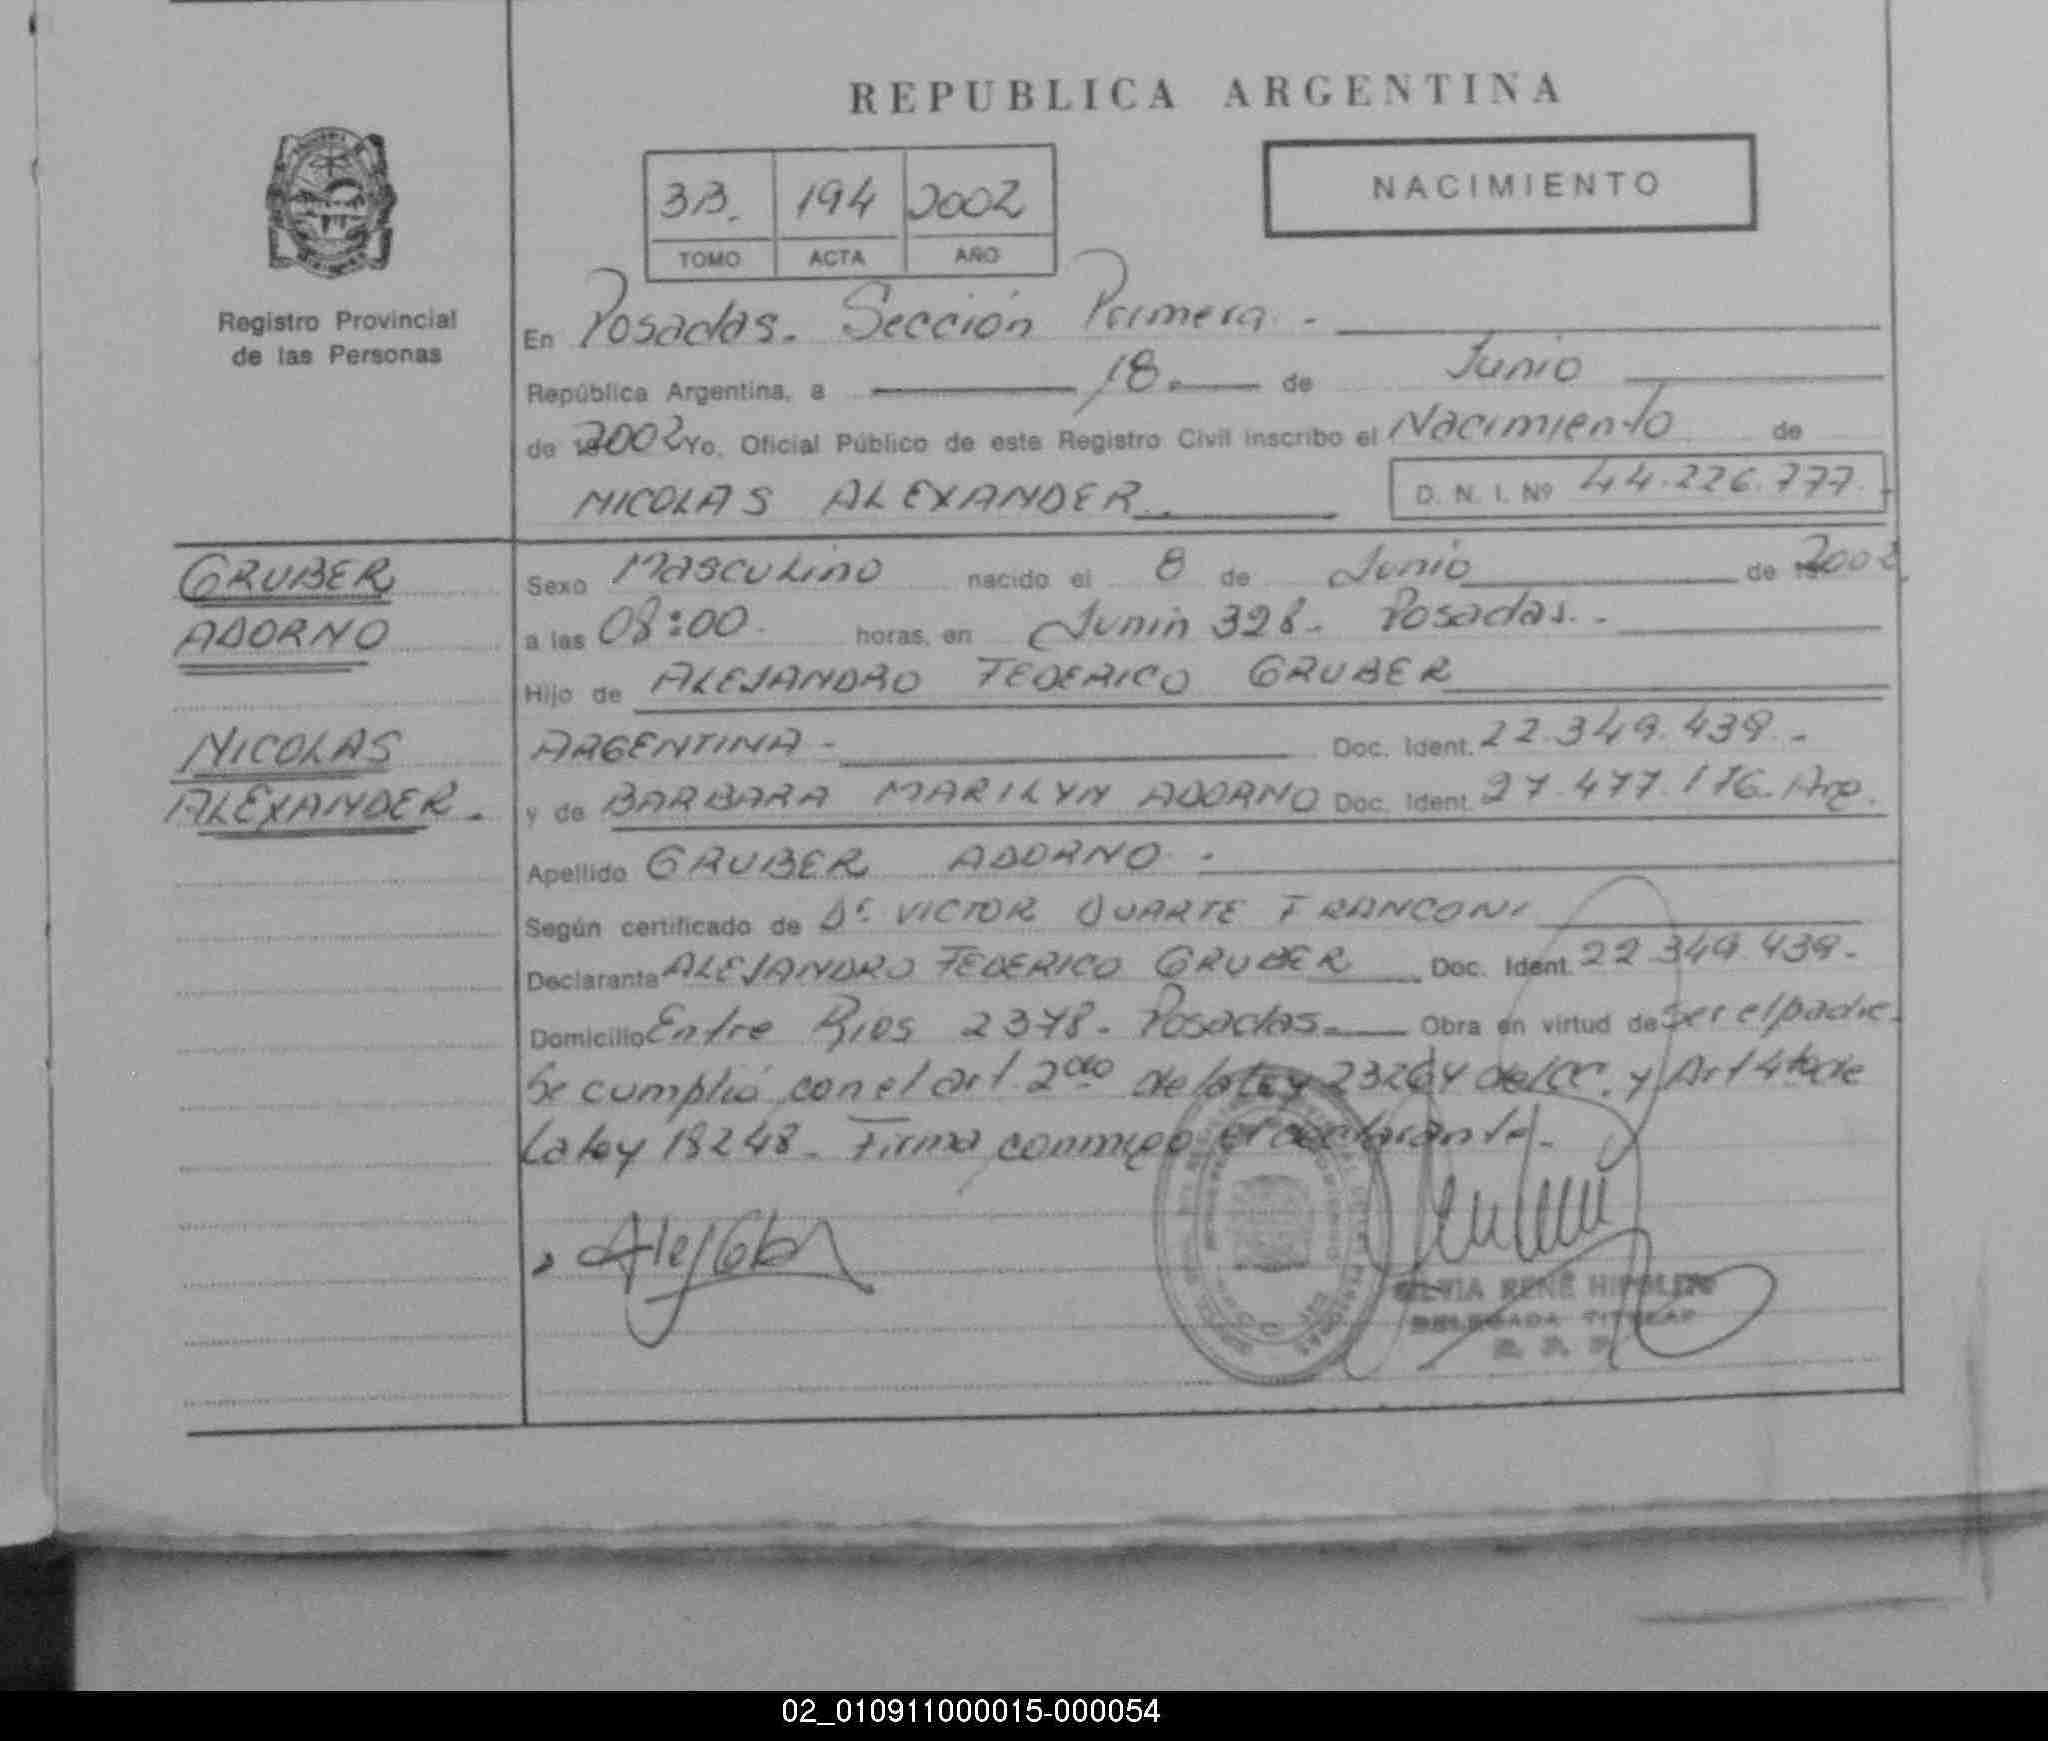 REPUBLICA ARGENTINA
NACIMIENTO
3B. 194 2002
TOMO ACTA AÑO
Registro Provincial
de las Personas
En Posadas. Sección Primera.-
República Argentina, a 18. de Junio
de 2002 Yo, Oficial Público de este Registro Civil inscribo el Nacimiento de
NICOLAS ALEXANDER
D. N. I. Nº 44.226.777.-
GRUBER
ADORNO
NICOLAS
ALEXANDER.
Sexo Masculino nacido el 8 de Junio de 2002.
a las 08:00. horas, en Junin 328. Posadas.-
Hijo de ALEJANDRO FEDERICO GRUBER
ARGENTINA - Doc. Ident. 22.349.439.-
y de BARBARA MARILYN ADORNO Doc. Ident. 27.477.176. Arg.
Apellido GRUBER ADORNO.-
Según certificado de Dr. VICTOR DUARTE FRANCONI
Declarante ALEJANDRO FEDERICO GRUBER Doc. Ident. 22.349.439.-
Domicilio Entre Rios 2378. Posadas. Obra en virtud de Ser el padre.
Se cumplió con el art. 2do de la Ley 23264 del CC. y Art 4to de
la ley 18248. Firma conmigo el declarante.-
SILVIA RENE HIPOLITO
DELEGADA TITULAR
R. P. P.
02_010911000015-000054